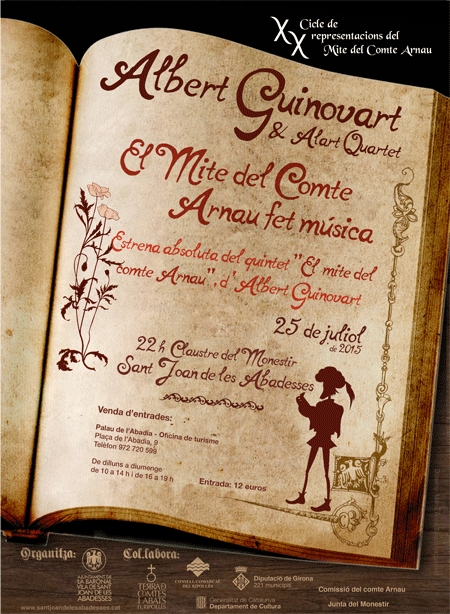 XX Cicle de
representacions del
Mite del Comte Arnau
Albert Guinovart
& Alart Quartet
El Mite del Comte
Arnau fet música
Estrena absoluta del quintet "El mite del
comte Arnau", d'Albert Guinovart
25 de juliol
de 2015
22 h Claustre del Monestir
Sant Joan de les Abadesses
Venda d'entrades:
Palau de l'Abadia - Oficina de turisme
Plaça de l'Abadia, 9
Telèfon 972 720 599
De dilluns a diumenge
de 10 a 14 h i de 16 a 19 h
Entrada: 12 euros
Organitza:
AJUNTAMENT DE
LA BARONIAL
VILA DE SANT
JOAN DE LES
ABADESSES
www.santjoandelesabadesses.cat
Col.labora:
TERRA DE
COMTES
I ABATS
EL RIPOLLÈS
CONSELL COMARCAL
DEL RIPOLLÈS
Diputació de Girona
221 municipis
Generalitat de Catalunya
Departament de Cultura
Comissió del comte Arnau
Junta del Monestir